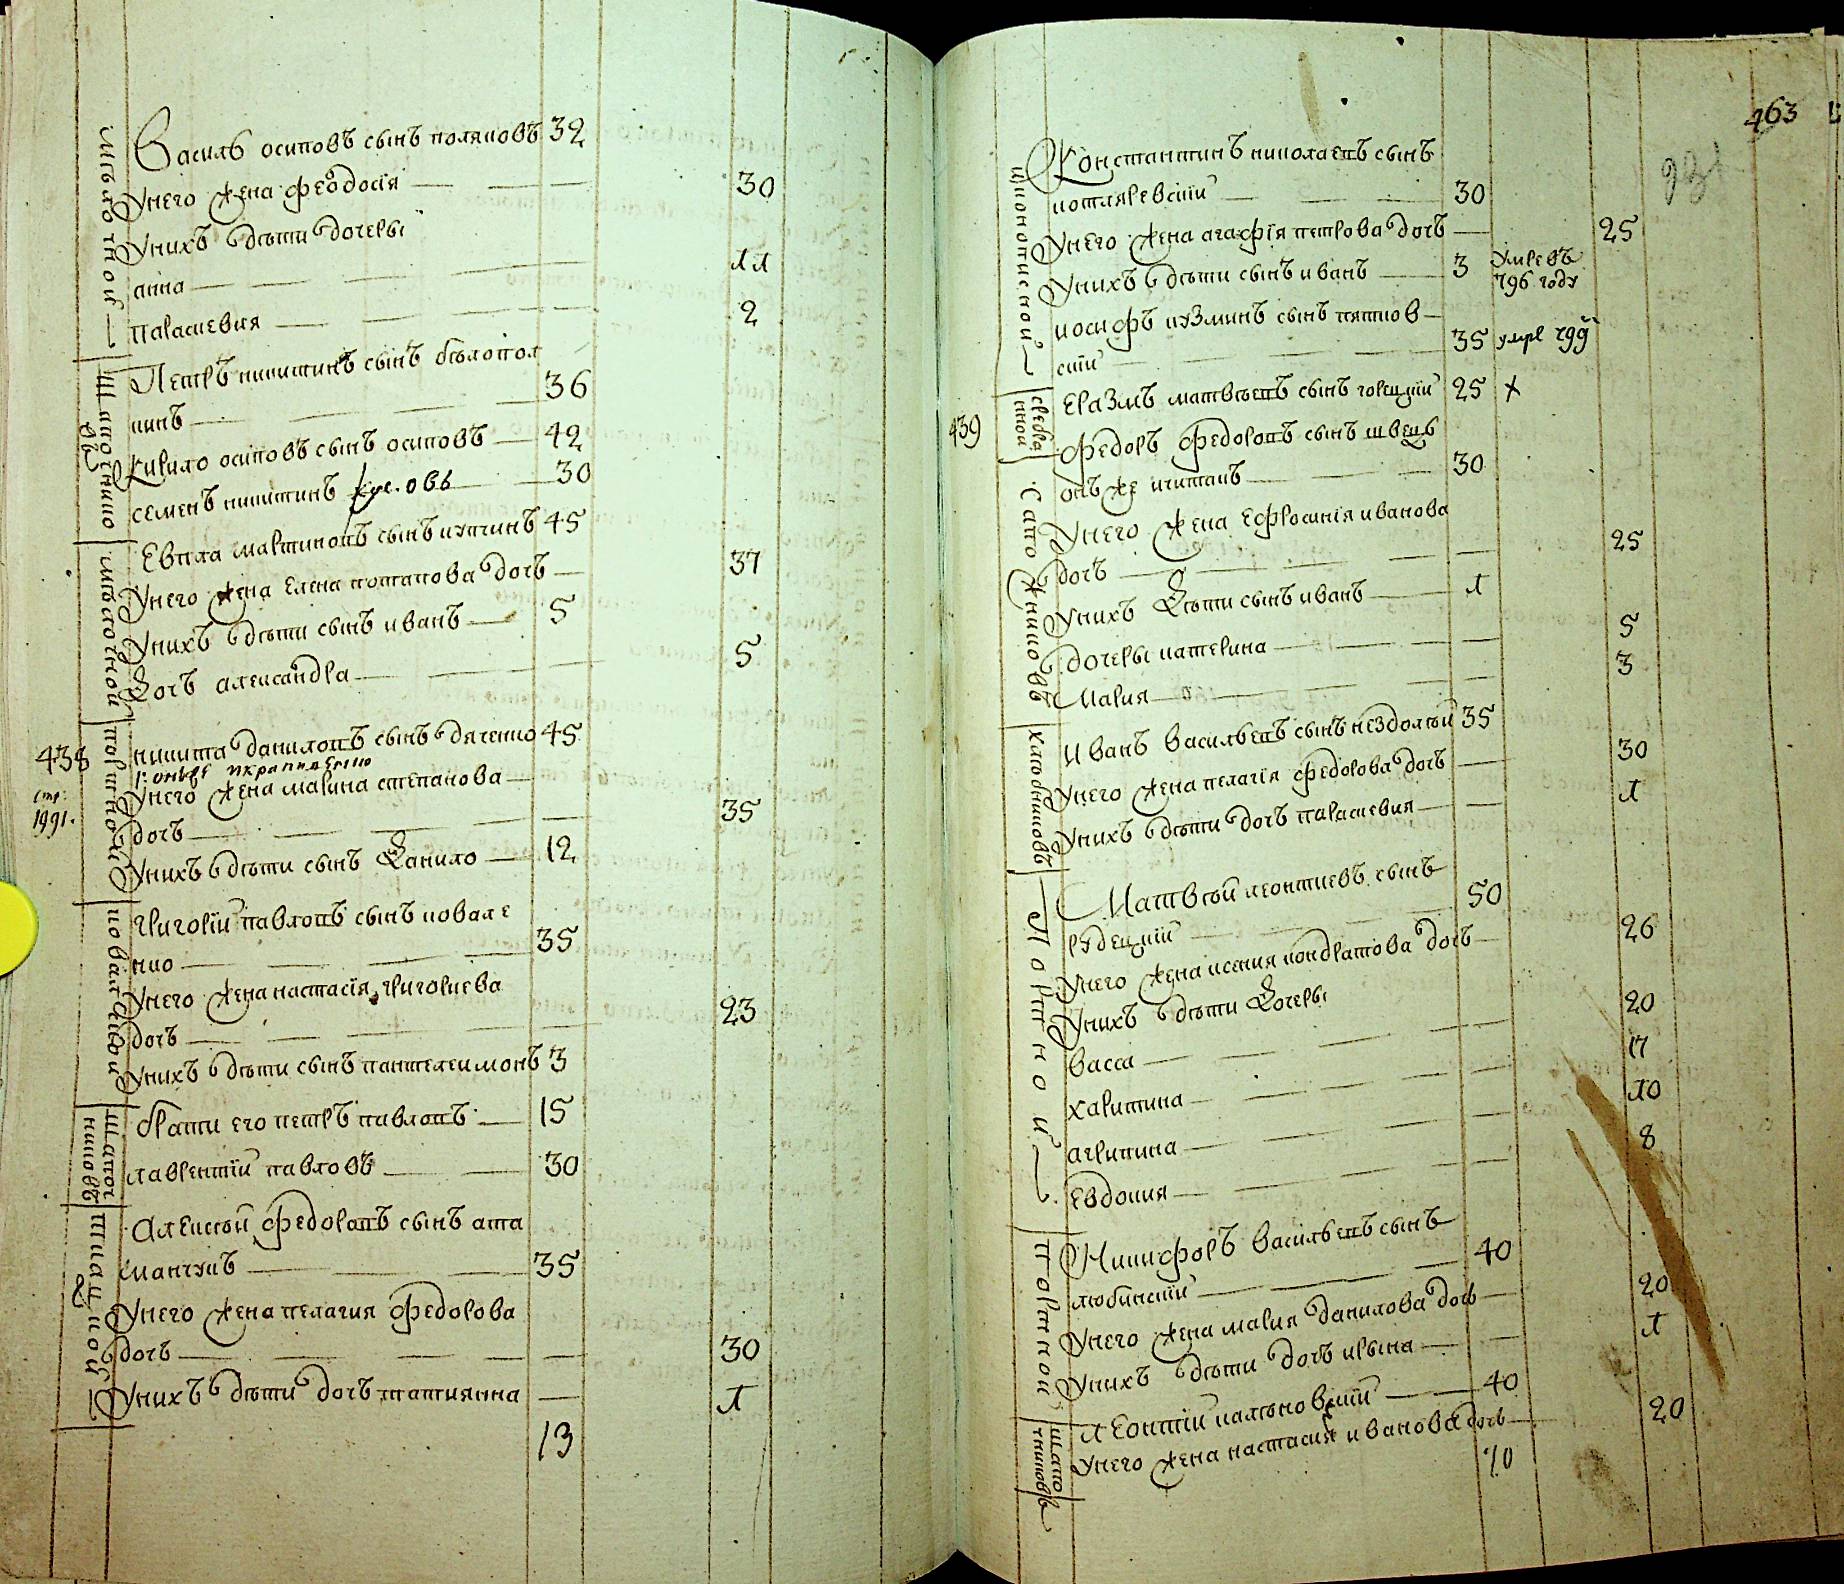 Василь осиповъ сынъ поляковъ 32
Унего жена феодосія 30
Унихъ дѣти дочеры
анна 11
параскевия 2
Петръ никитинъ сынъ бѣлопол
кинъ 36
Кирило осиповъ сынъ осиповъ 42
семенъ никитинъ 30
Евпла мартиновъ сынъ купчинъ 45
Унего жена елена потапова дочъ 37
Унихъ дѣти сынъ иванъ 5
Дочъ александра 5
438
никита даниловъ сынъ дяченко 45
стр: 1991.
Унего жена марина степанова
дочъ 35
Унихъ дѣти сынъ Данило 12
григорій павловъ сынъ ковале
нко 35
Унего жена настасія григориева
дочъ 23
Унихъ дѣти сынъ пантелеимонъ 3
брати его петръ павловъ 15
лаврентій павловъ 30
Алексѣй федоровъ сынъ ата
манчукъ 35
Унего жена пелагия федорова
дочъ 30
Унихъ дѣти дочъ татиянна 1
13
463
931
иконописной
Константинъ николаевъ сынъ
котляревскій 30
Унего жена агафія петрова дочъ 25
Унихъ дѣти сынъ иванъ 3 Умре въ
796 году
иосифъ кузминъ сынъ пятков
скій 35 умре 799
Еразмъ матвѣевъ сынъ горецкій 25 х
439
Федоръ федоровъ сынъ швецъ
онъже 30
Унего жена Ефросинія иванова
дочъ 25
Унихъ Дѣти сынъ иванъ 1
дочеры катерина 5
Мария 3
Иванъ Васильевъ сынъ нездолтой 35
Унего жена пелагія федорова дочъ 30
Унихъ дѣти дочъ параскевия 1
Портной
Матвѣй леонтиевъ сынъ
рудецкій 50
Унего жена ксения кондратова дочъ 26
Унихъ дѣти Дочеры
васса 20
харитина 17
агрипина 10
Евдокия 8
портной
Никифоръ Васильевъ сынъ
любинскій 40
Унего жена мария данилова дочъ 20
Унихъ дѣти дочъ ирына 1
Леонтій калѣновскій 40
Унего жена настасия иванова дочъ 20
10